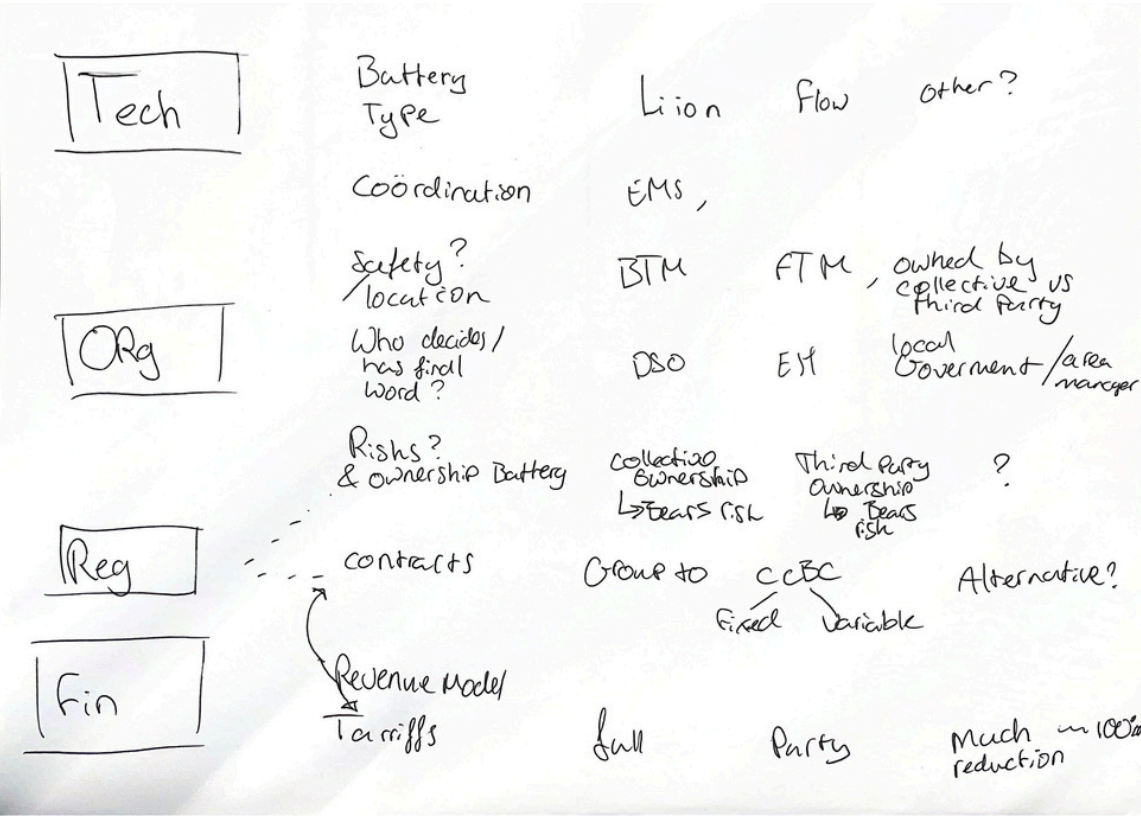 Tech
Battery
Type
Li ion
Flow
other?
Coördination
EMS,
Safety?
/location
BTM
FTM, owned by
collective vs
third Party
ORg
Who decides/
has final
word?
DSO
EH
local
Goverment/area
manager
Risks?
& ownership Battery
Collective
Ownership
↳Bears risk
Third Party
Ownership
↳ Bears
risk
?
Reg
contracts
Group to
CCBC
Fixed
Variable
Alternative?
Fin
Revenue Model
Tarriffs
full
Party
Much
100%
reduction